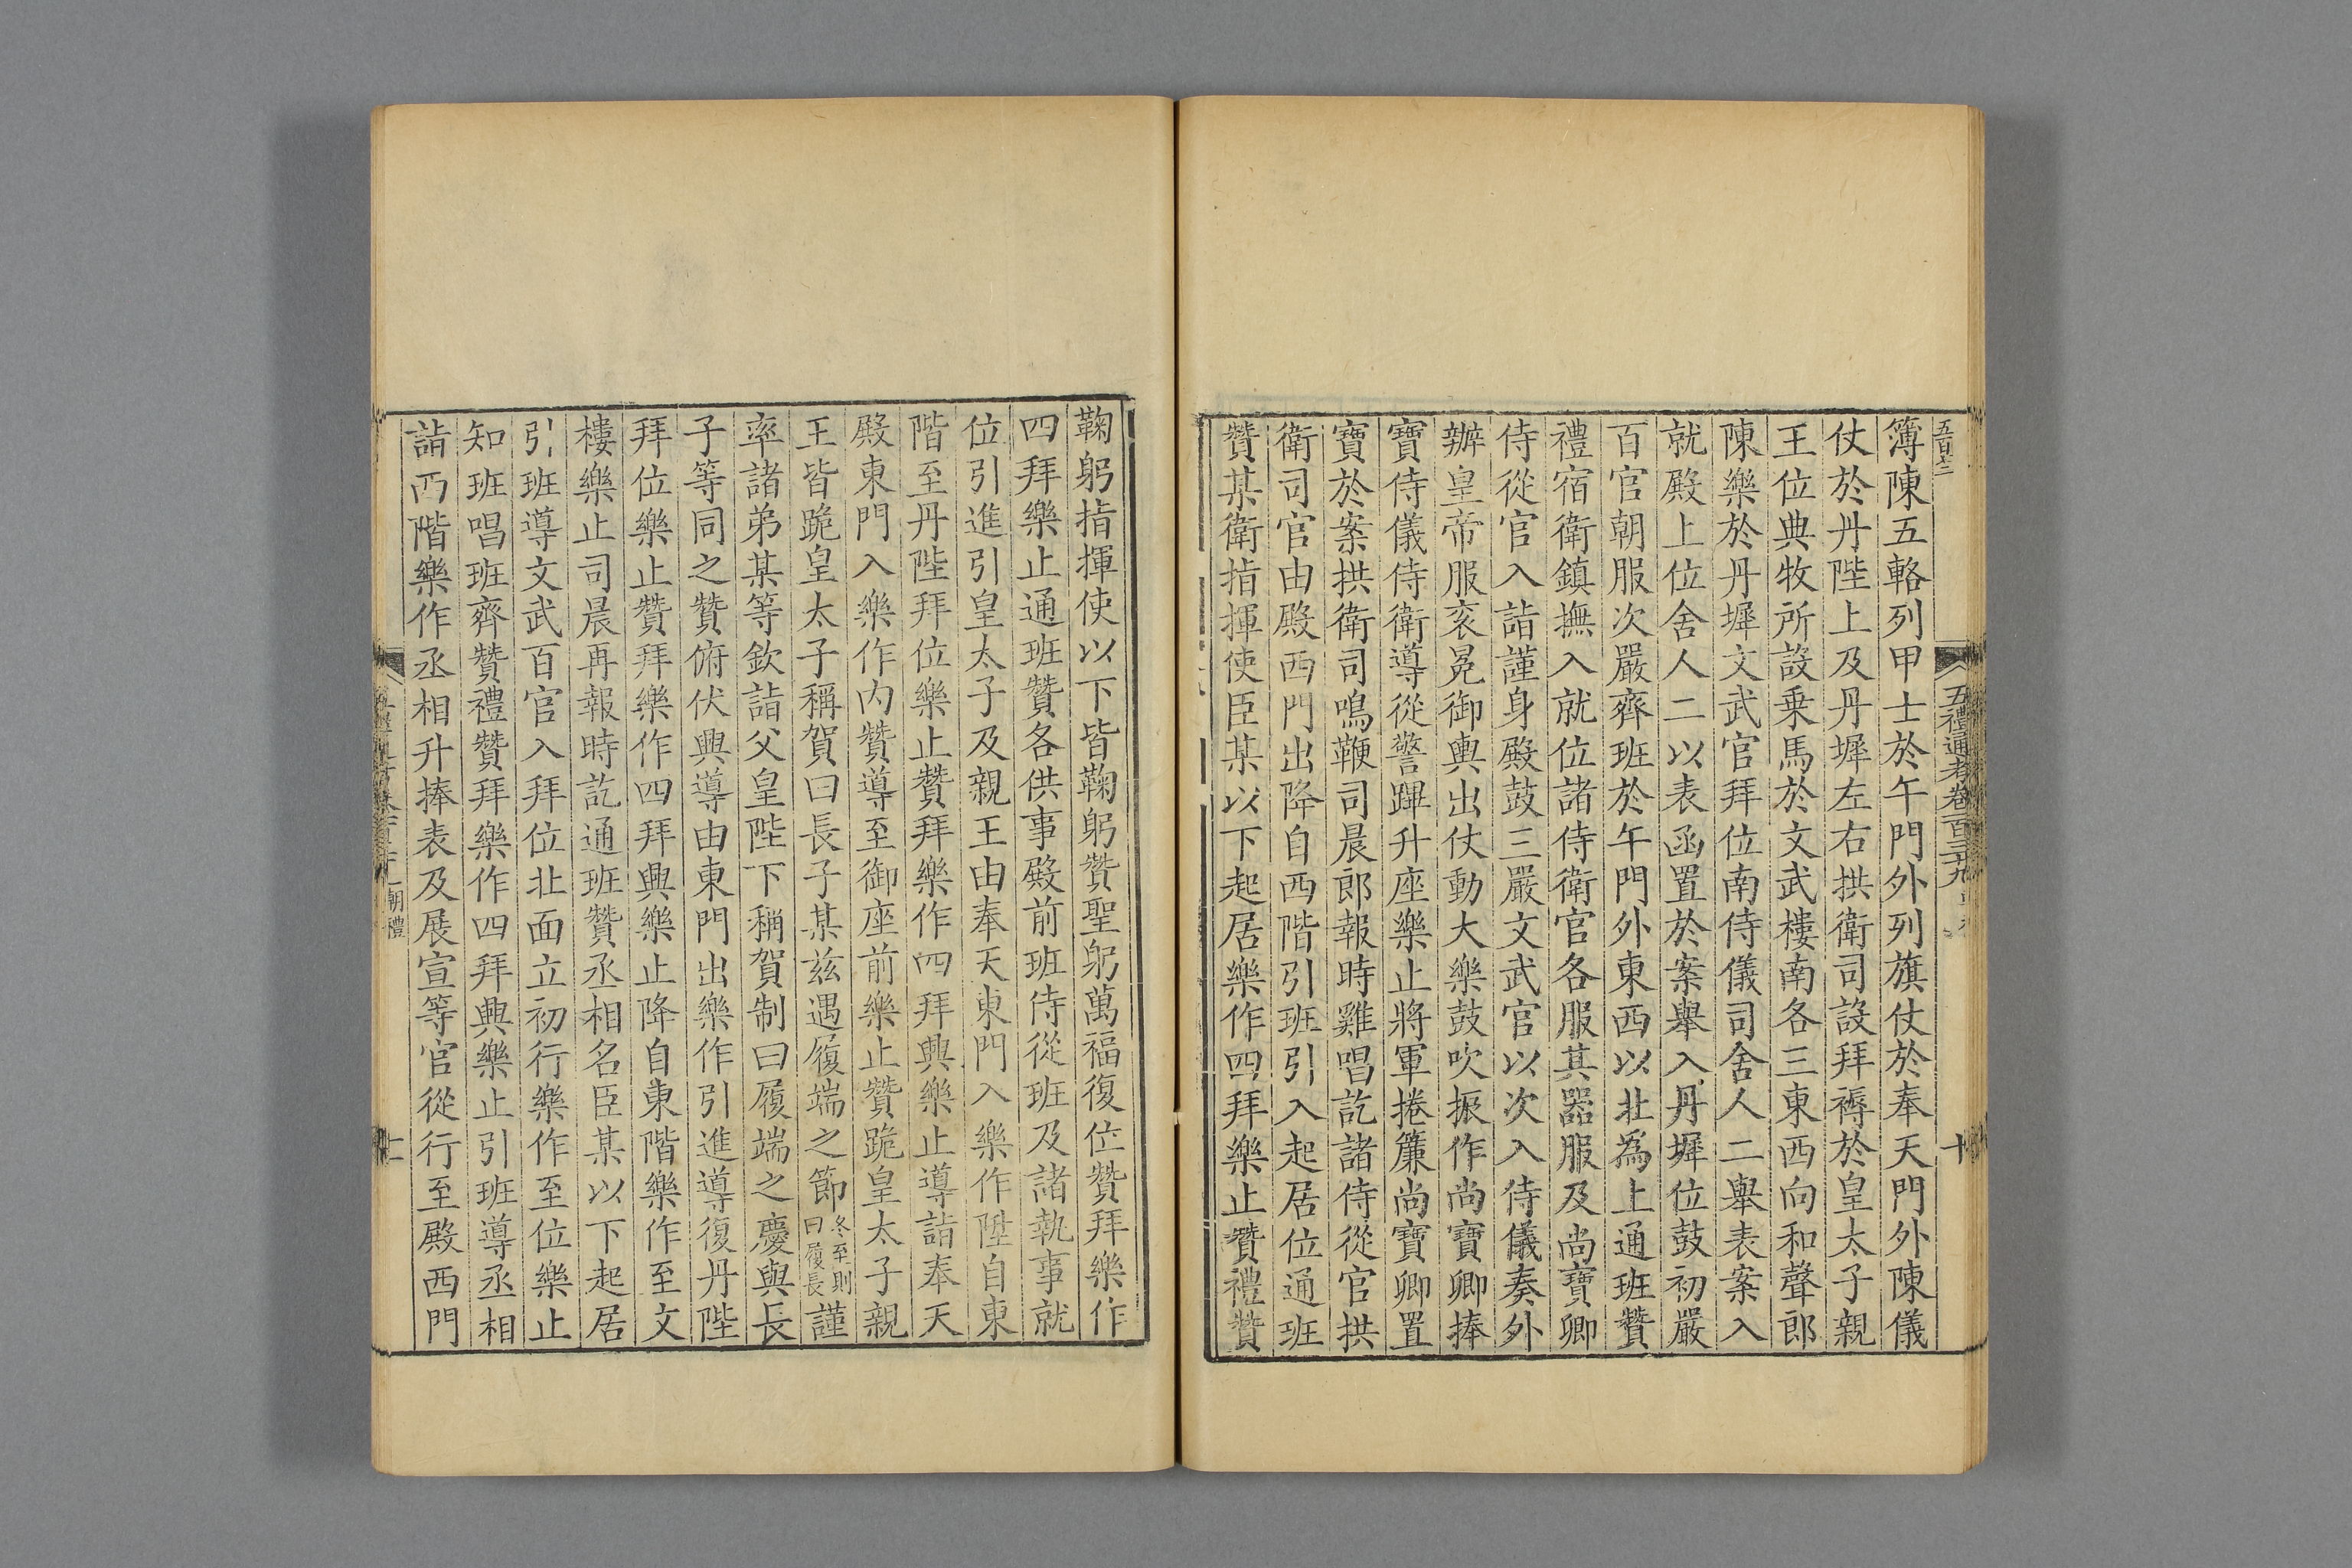 五禮通考卷一百三十九
十
簿陳五輅列甲士於午門外列旗仗於奉天門外陳儀
仗於丹陛上及丹墀左右拱衛司設拜褥於皇太子親
王位典牧所設乗馬於文武樓南各三東西向和聲郎
陳樂於丹墀文武官拜位南侍儀司舍人二舉表案入
就殿上位舍人二以表函置於案舉入丹墀位鼓初嚴
百官朝服次嚴齊班於午門外東西以北為上通班贊
禮宿衛鎮撫入就位諸侍衛官各服其器服及尚寶卿
侍從官入詣謹身殿鼓三嚴文武官以次入侍儀奏外
辦皇帝服衮冕御輿出仗動大樂鼓吹振作尚寶卿捧
寶侍儀侍衛導從警蹕升座樂止將軍捲簾尚寶卿置
寶於案拱衛司鳴鞭司晨郎報時雞唱訖諸侍從官拱
衛司官由殿西門出降自西階引班引入起居位通班
贊某衛指揮使臣某以下起居樂作四拜樂止贊禮贊
鞠躬指揮使以下皆鞠躬贊聖躬萬福復位贊拜樂作
四拜樂止通班贊各供事殿前班侍從班及諸執事就
位引進引皇太子及親王由奉天東門入樂作陞自東
階至丹陛拜位樂止贊拜樂作四拜興樂止導詣奉天
殿東門入樂作内贊導至御座前樂止贊跪皇太子親
王皆跪皇太子稱賀曰長子某兹遇履端之節冬至則曰履長謹
率諸弟某等欽詣父皇陛下稱賀制曰履端之慶與長
子等同之贊俯伏興導由東門出樂作引進導復丹陛
拜位樂止贊拜樂作四拜興樂止降自東階樂作至文
樓樂止司晨再報時訖通班贊丞相名臣某以下起居
引班導文武百官入拜位北面立初行樂作至位樂止
知班唱班齊贊禮贊拜樂作四拜興樂止引班導丞相
詣西階樂作丞相升捧表及展宣等官從行至殿西門
朝禮